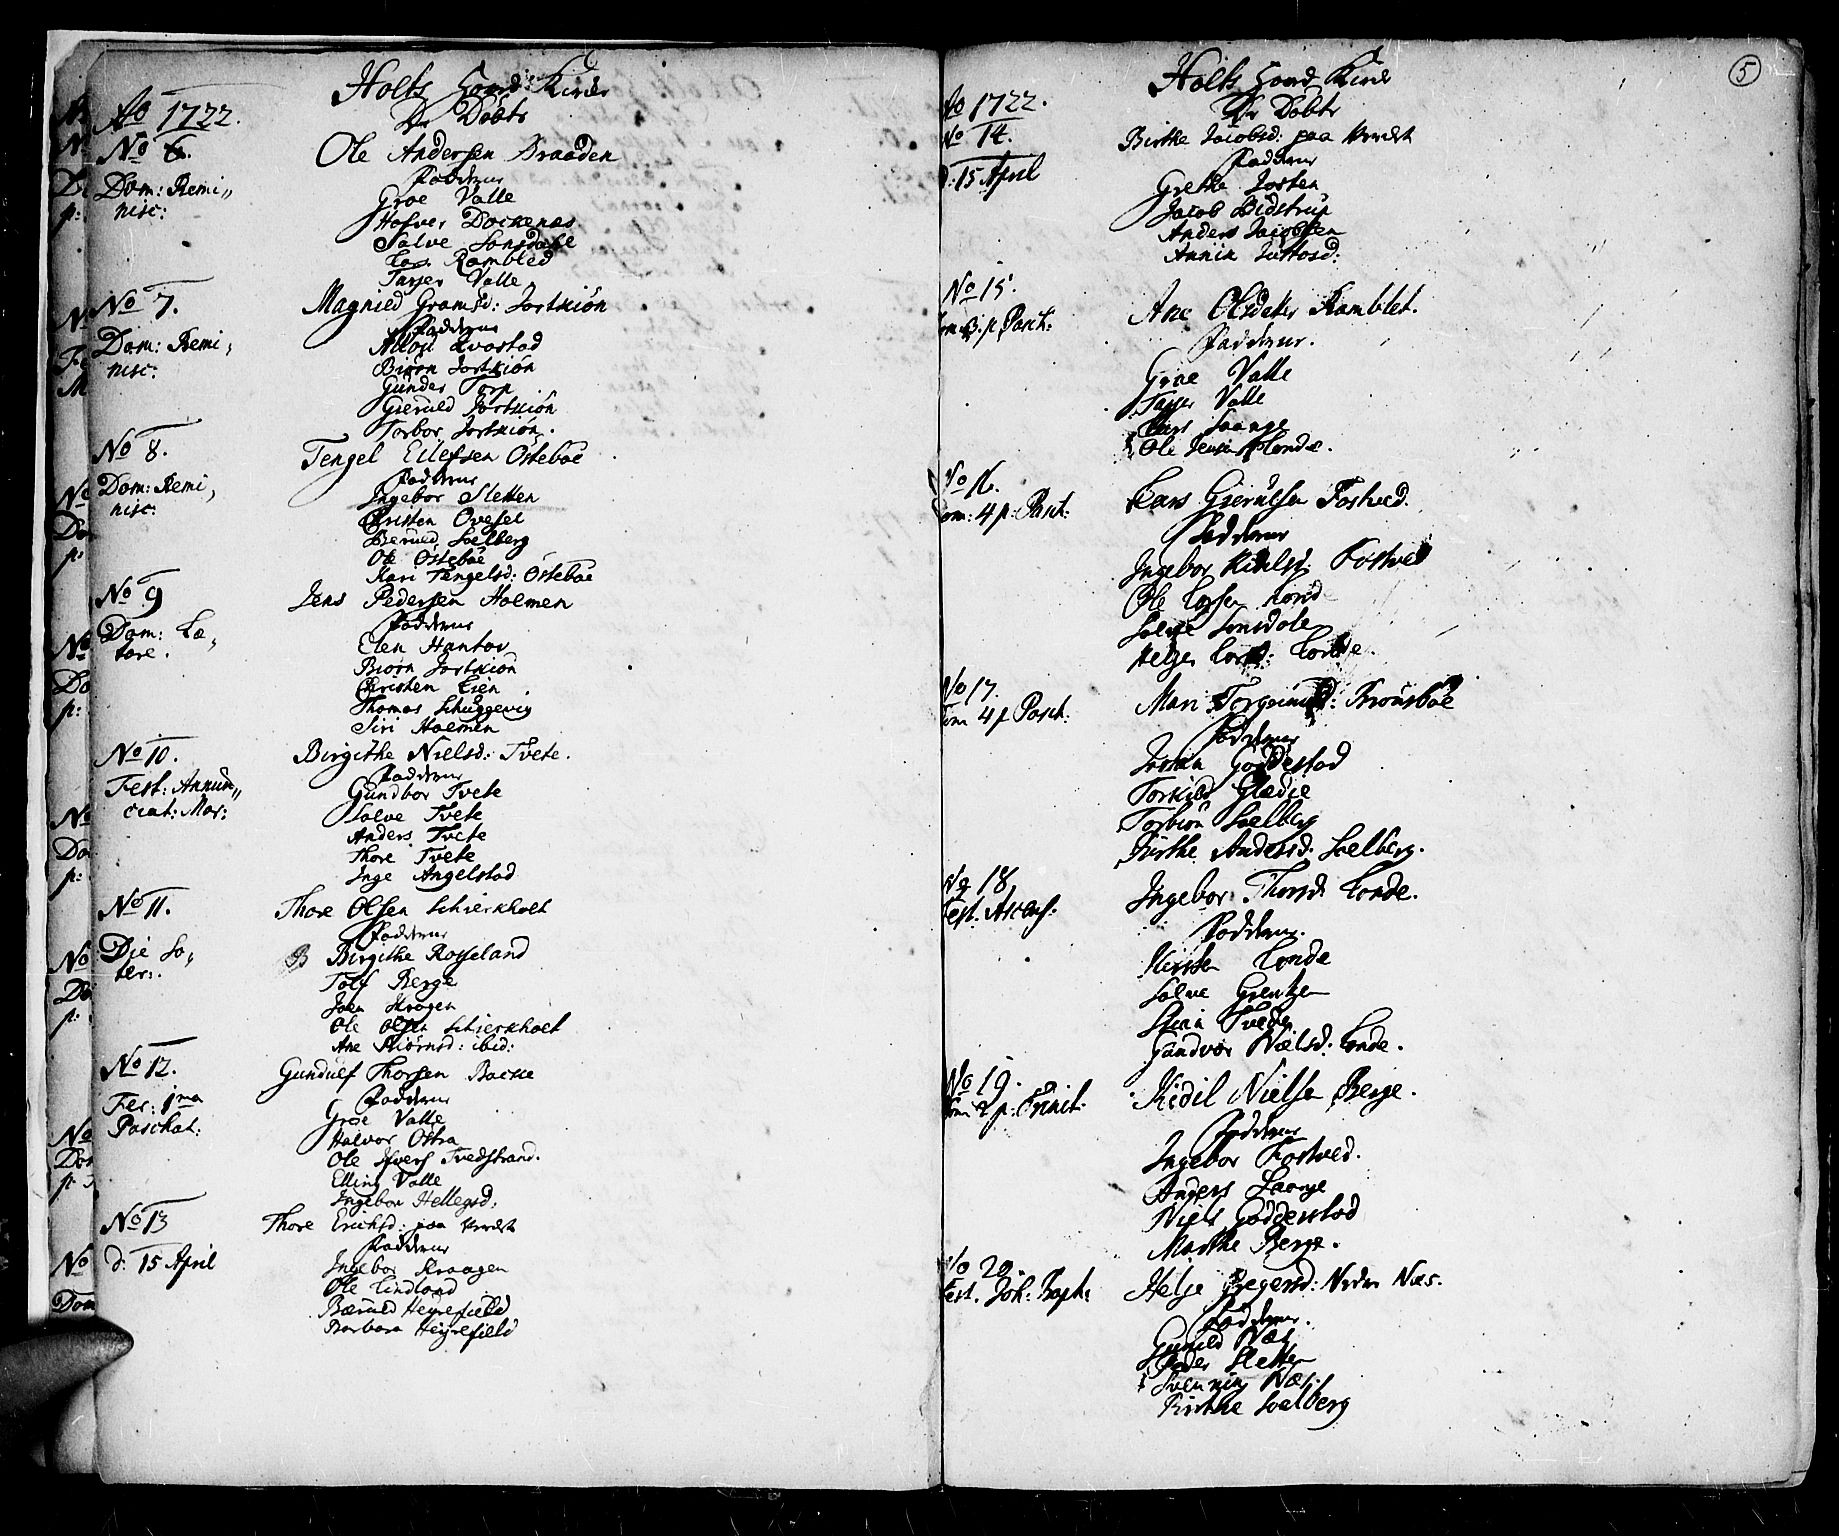 Ao 1722.
Holts Hoved Kirke
De Döbte
No 6.
Dom: Remi„
nisc:
Ole Andersen Braaden
Fadderne
Groe Valle
Halvor Dockenæs
Salve Lonsdahl
Lars Rambled
Tarjer Valle
No 7.
Dom: Remi,
nisc:
Magnild Gramsd: Jortkiön
Fadderne
Asloug Qvastad
Biörn Jortkiön
Gunder Torp
Gieruld Jortkiön
Torbor Jortkiön.
No 8.
Dom: Remi,
nisc:
Tengel Eilefsen Östeböe
Fadderne
Ingebor Sletten
Christen Ovesel
Beruld Soelberg
Ole Östeböe
Kari Tengelsd: Östeböe
No 9
Dom: Læ„
tare.
Jens Pedersen Holmen
Fadderne
Elen Hantov
Biörn Jortkiön
Christen Eien
Thomas Schuggevig
Siri Holmen
No 10.
Fest: Annun„
ciat: Mar:
Birgithe Nielsd: Tvete.
Fadderne
Gundbor Tvete
Salve Tvete
Anders Tvete
Thore Tvete
Inge Angelstad
No 11.
Die So„
ter:
Thore Olsen Schierkholt
Fadderne
B Birgithe Rosseland
Tolf Berge
Joen Skrogen
Ole Olsen Schierkholt
Ane Biörnsd: ibid:
No 12.
Fer: 1ma
Paschat:
Gundulf Thorsen Backe
Fadderne
Groe Valle
Halvor Östra
Ole Ifvers Tvedstrand.
Elling Valle
Ingebor Hellegsd:
No 13
d: 15 April
Thore Erichsd: paa
Fadderne
Ingebor Kraagen
Ole Lindland
Bæruld Heyrefield
Barbara Heyrefield
5
Holts Hoved Kirke
De Döbte
Ao 1722.
No 14.
d: 15 April
Birthe Jacobsd: paa
Fadderne
Grethe Josten
Jacob Bidstrup
Anders Jacobsen
Annin
No 15.
3. p. Pasch:
Ane Olsdater Ramblet.
Fadderne.
Groe Valle
Tarjer Valle
Lars Laange
Ole Jensen Londe.
No 16.
Dom: 4 p: Pasch:
Lars Gierulsen Fostved.
Fadderne
Ingebor Kidilsd: Fostved
Ole Larsen
Salve Lonsdale
Helje Larsd: Londe.
No 17.
Dom 4 p Pasch:
Mari Torgrimsd: Brönsböe
Fadderne
Joran Goddestad
Torkild Glædie
Torbiön Soelberg
Birthe Andersd: Soelberg.
No 18
Fest. Ascens:
Ingebor Thorsd: Londe.
Fadderne.
Kirsten Londe
Salve Grentzen
Stian Tvede
Gundvor Nielsd: Londe.
No 19.
Dom 2 p: Trinit:
Kidil Nielsen Berge.
Fadderne
Ingebor Fostved.
Anders Laange
Niels Godderstad
Marthe Berge.
No 20.
Fest. Joh: Bapt:
Helje Begersd: Neder Næs.
Fadderne.
Gunild Næs
Peder Sletten
Svenning Næs
Kirthe Soelberg